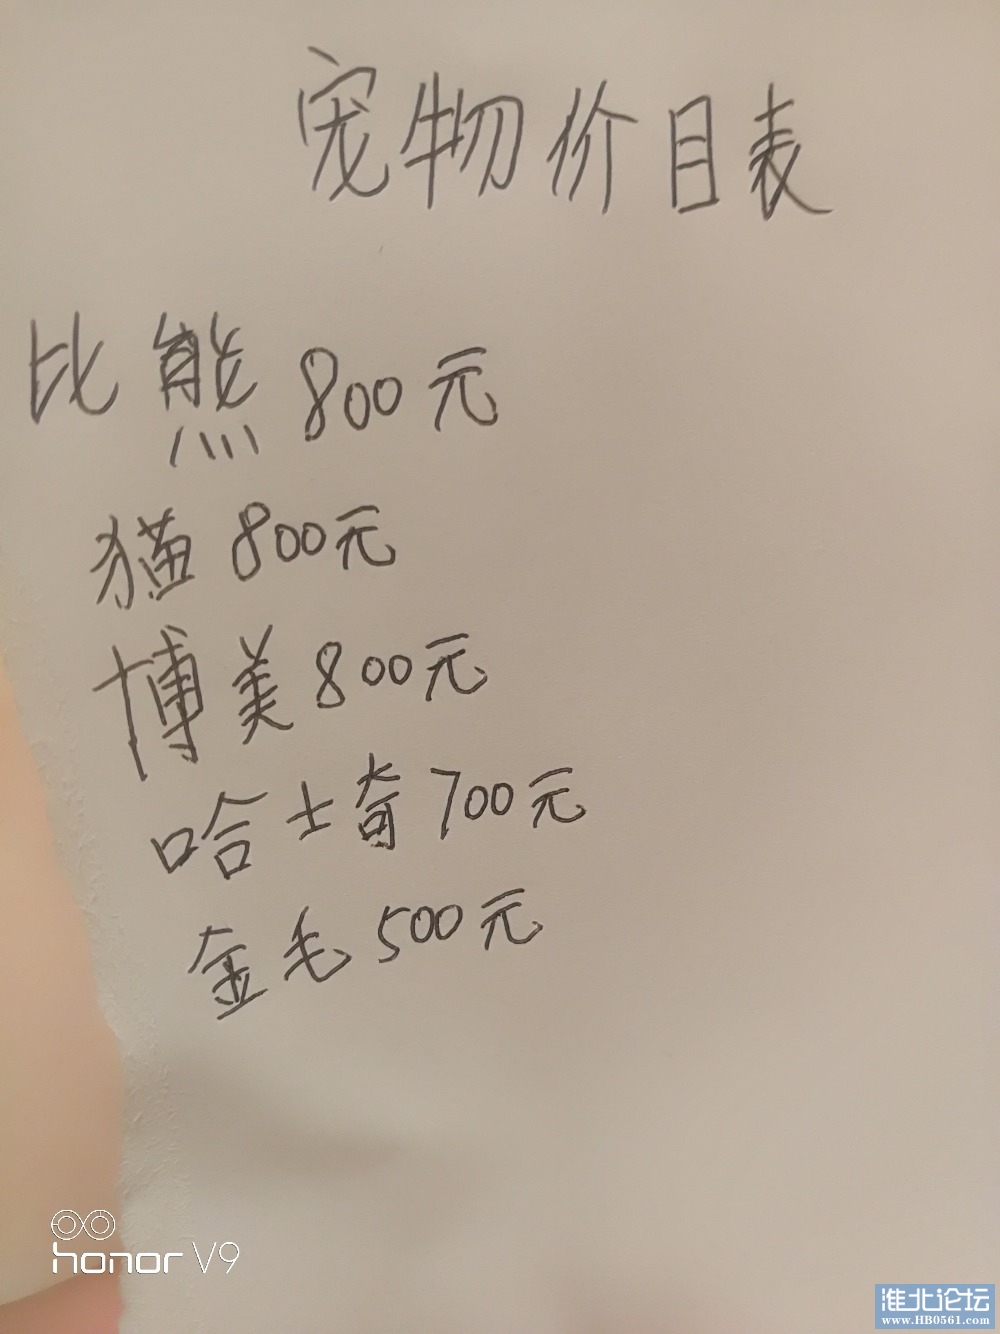 宠物价目表
比熊800元
猫800元
博美800元
哈士奇700元
金毛500元
honor V9
淮北论坛
www.HB0561.com